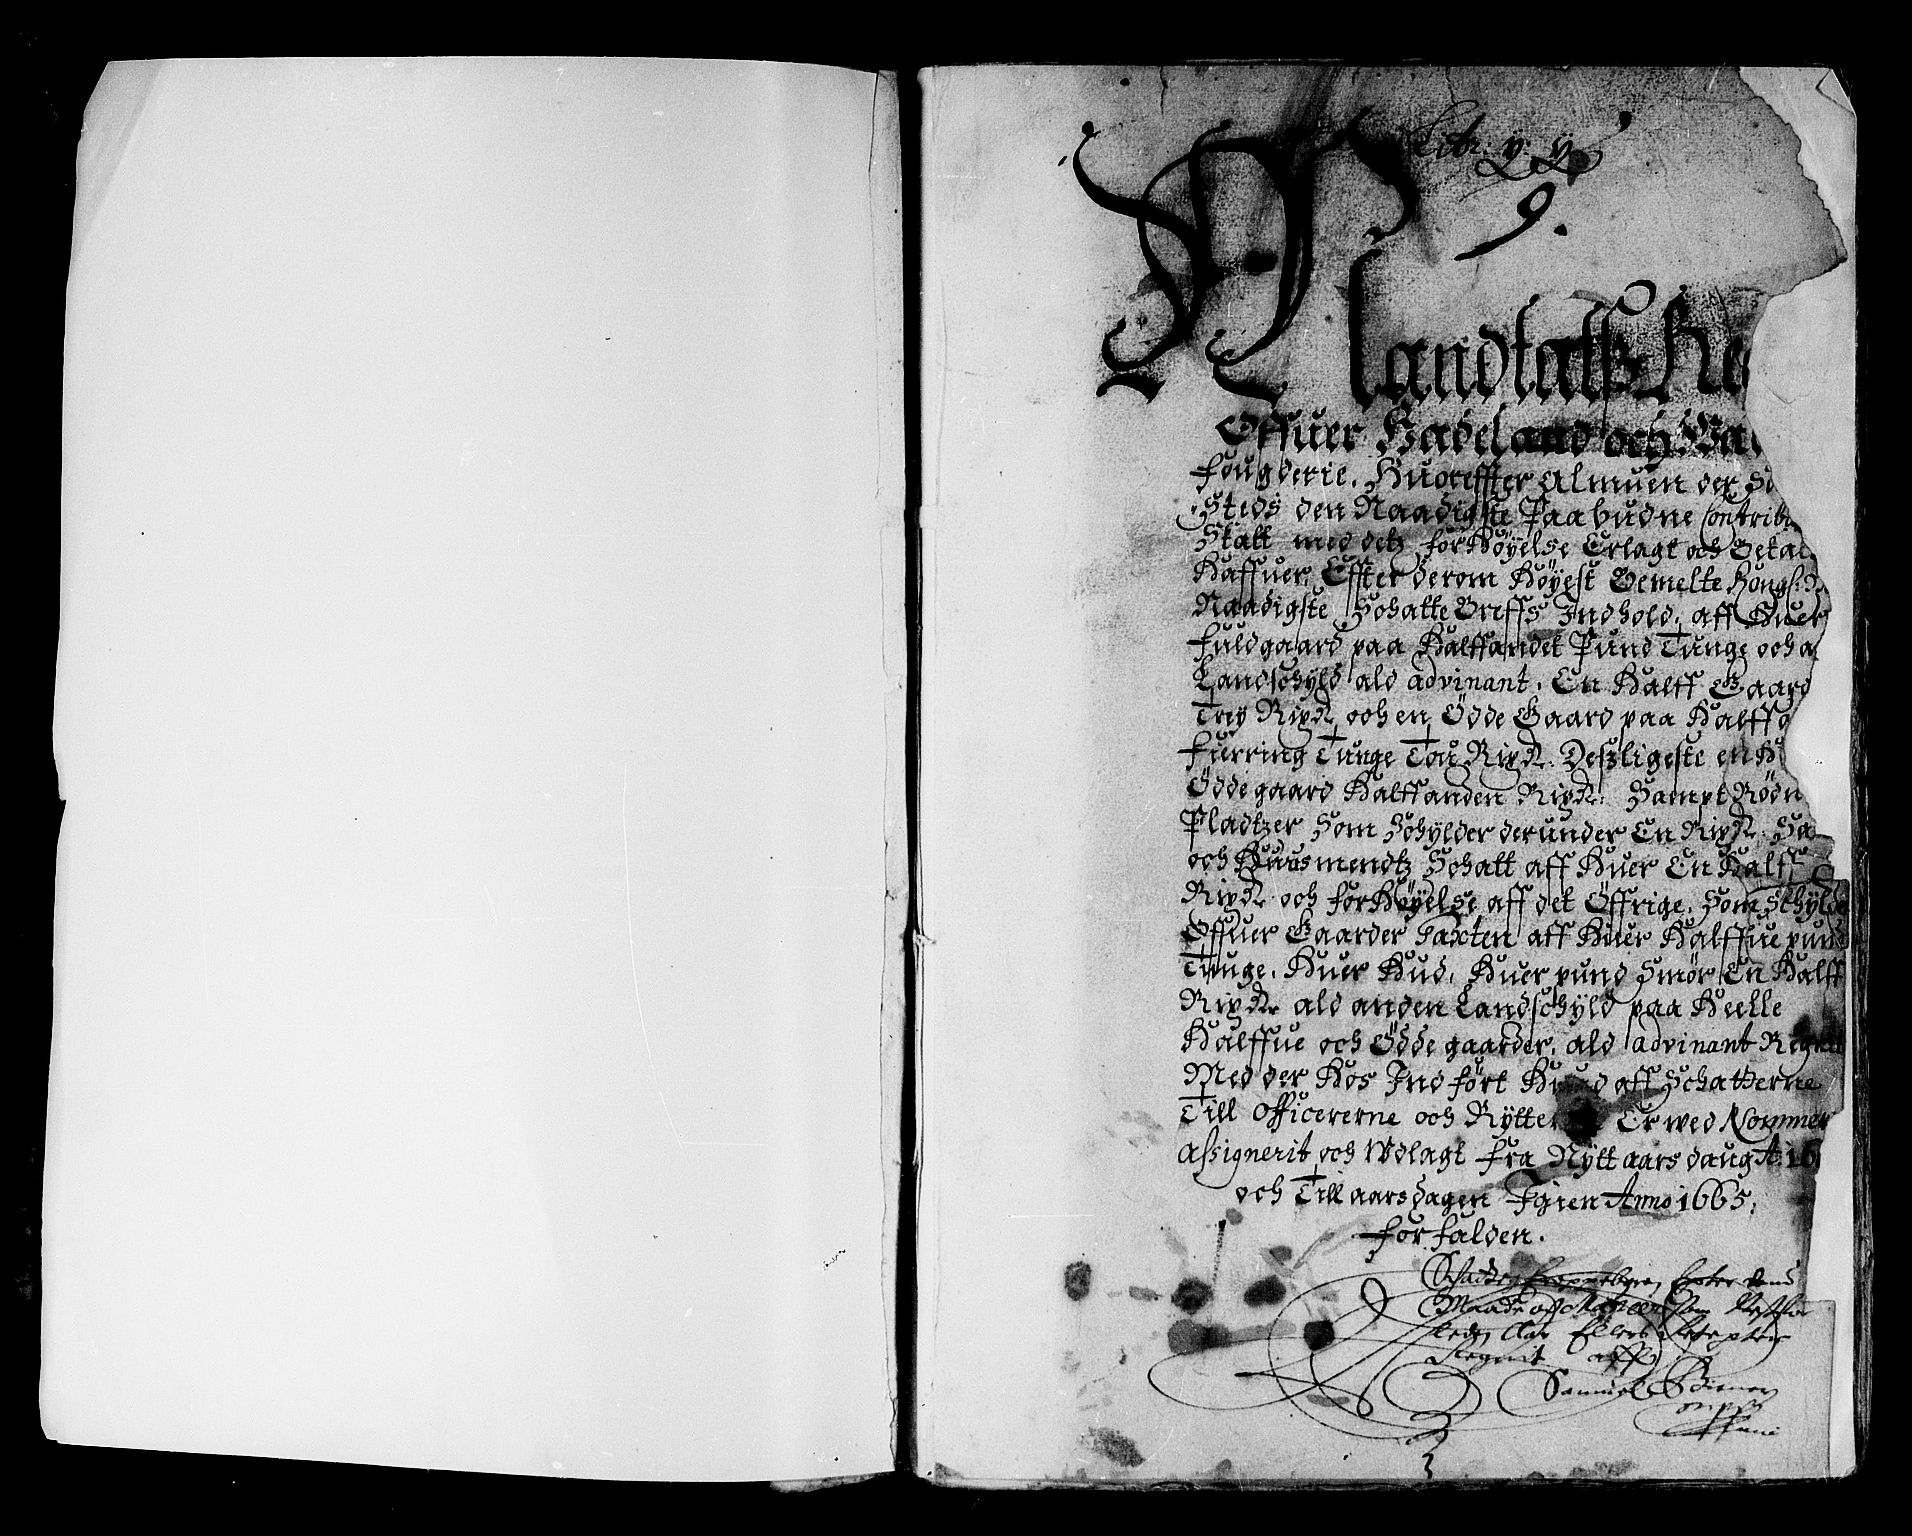 Litr: ÿ: ÿ
9.
Mandtalß Re
Offuer Hadeland och Wal
fougderie, Huoreffter Almuen der S
Steds den Naadigste Paabudne Contribu
Skatt med detz forhöyelse Erlagt och Betal
Haffuer, Effter derom Höyest Bemelte Kongl:
Naadigste Schatte Breffs Indhold, aff Huer
fuldgaard paa Halffandet Pund Tunge och a
Landschyld ald advinant, En Halff Gaard
Trey Rixdr och en Ödde Gaard paa Halff
fierring Tunge Tou Rixdr. Deszligeste en
Öddegaard Halffanden Rixdr. Sampt Rödn
Pladtzer Som Schylder derunder En Rixdr. Sa
och Huusmendtz Schatt aff Huer En Halff
Rixdr och forhöyelse aff det Öffrige, Som Schylder
Offuer Gaarder Taxten aff Huer Halffue pund
Tunge, Huer Hud, Huer pund Smör En Halff
Rixdr ald anden Landschyld paa Heelle
Halffue och Ödde gaarder, ald advinant Regnit
Med der Hos Indfört Huad aff Schatterne
Till Officererne och Rytter Er wed Nommer
Assignerit och Wdlagt fra Nÿtt aars daug A: 16
och Till aarsdagen Igien Anno 1665,
forfalden.
Maade som
Aar Ellers
Regnit aff
Samuel